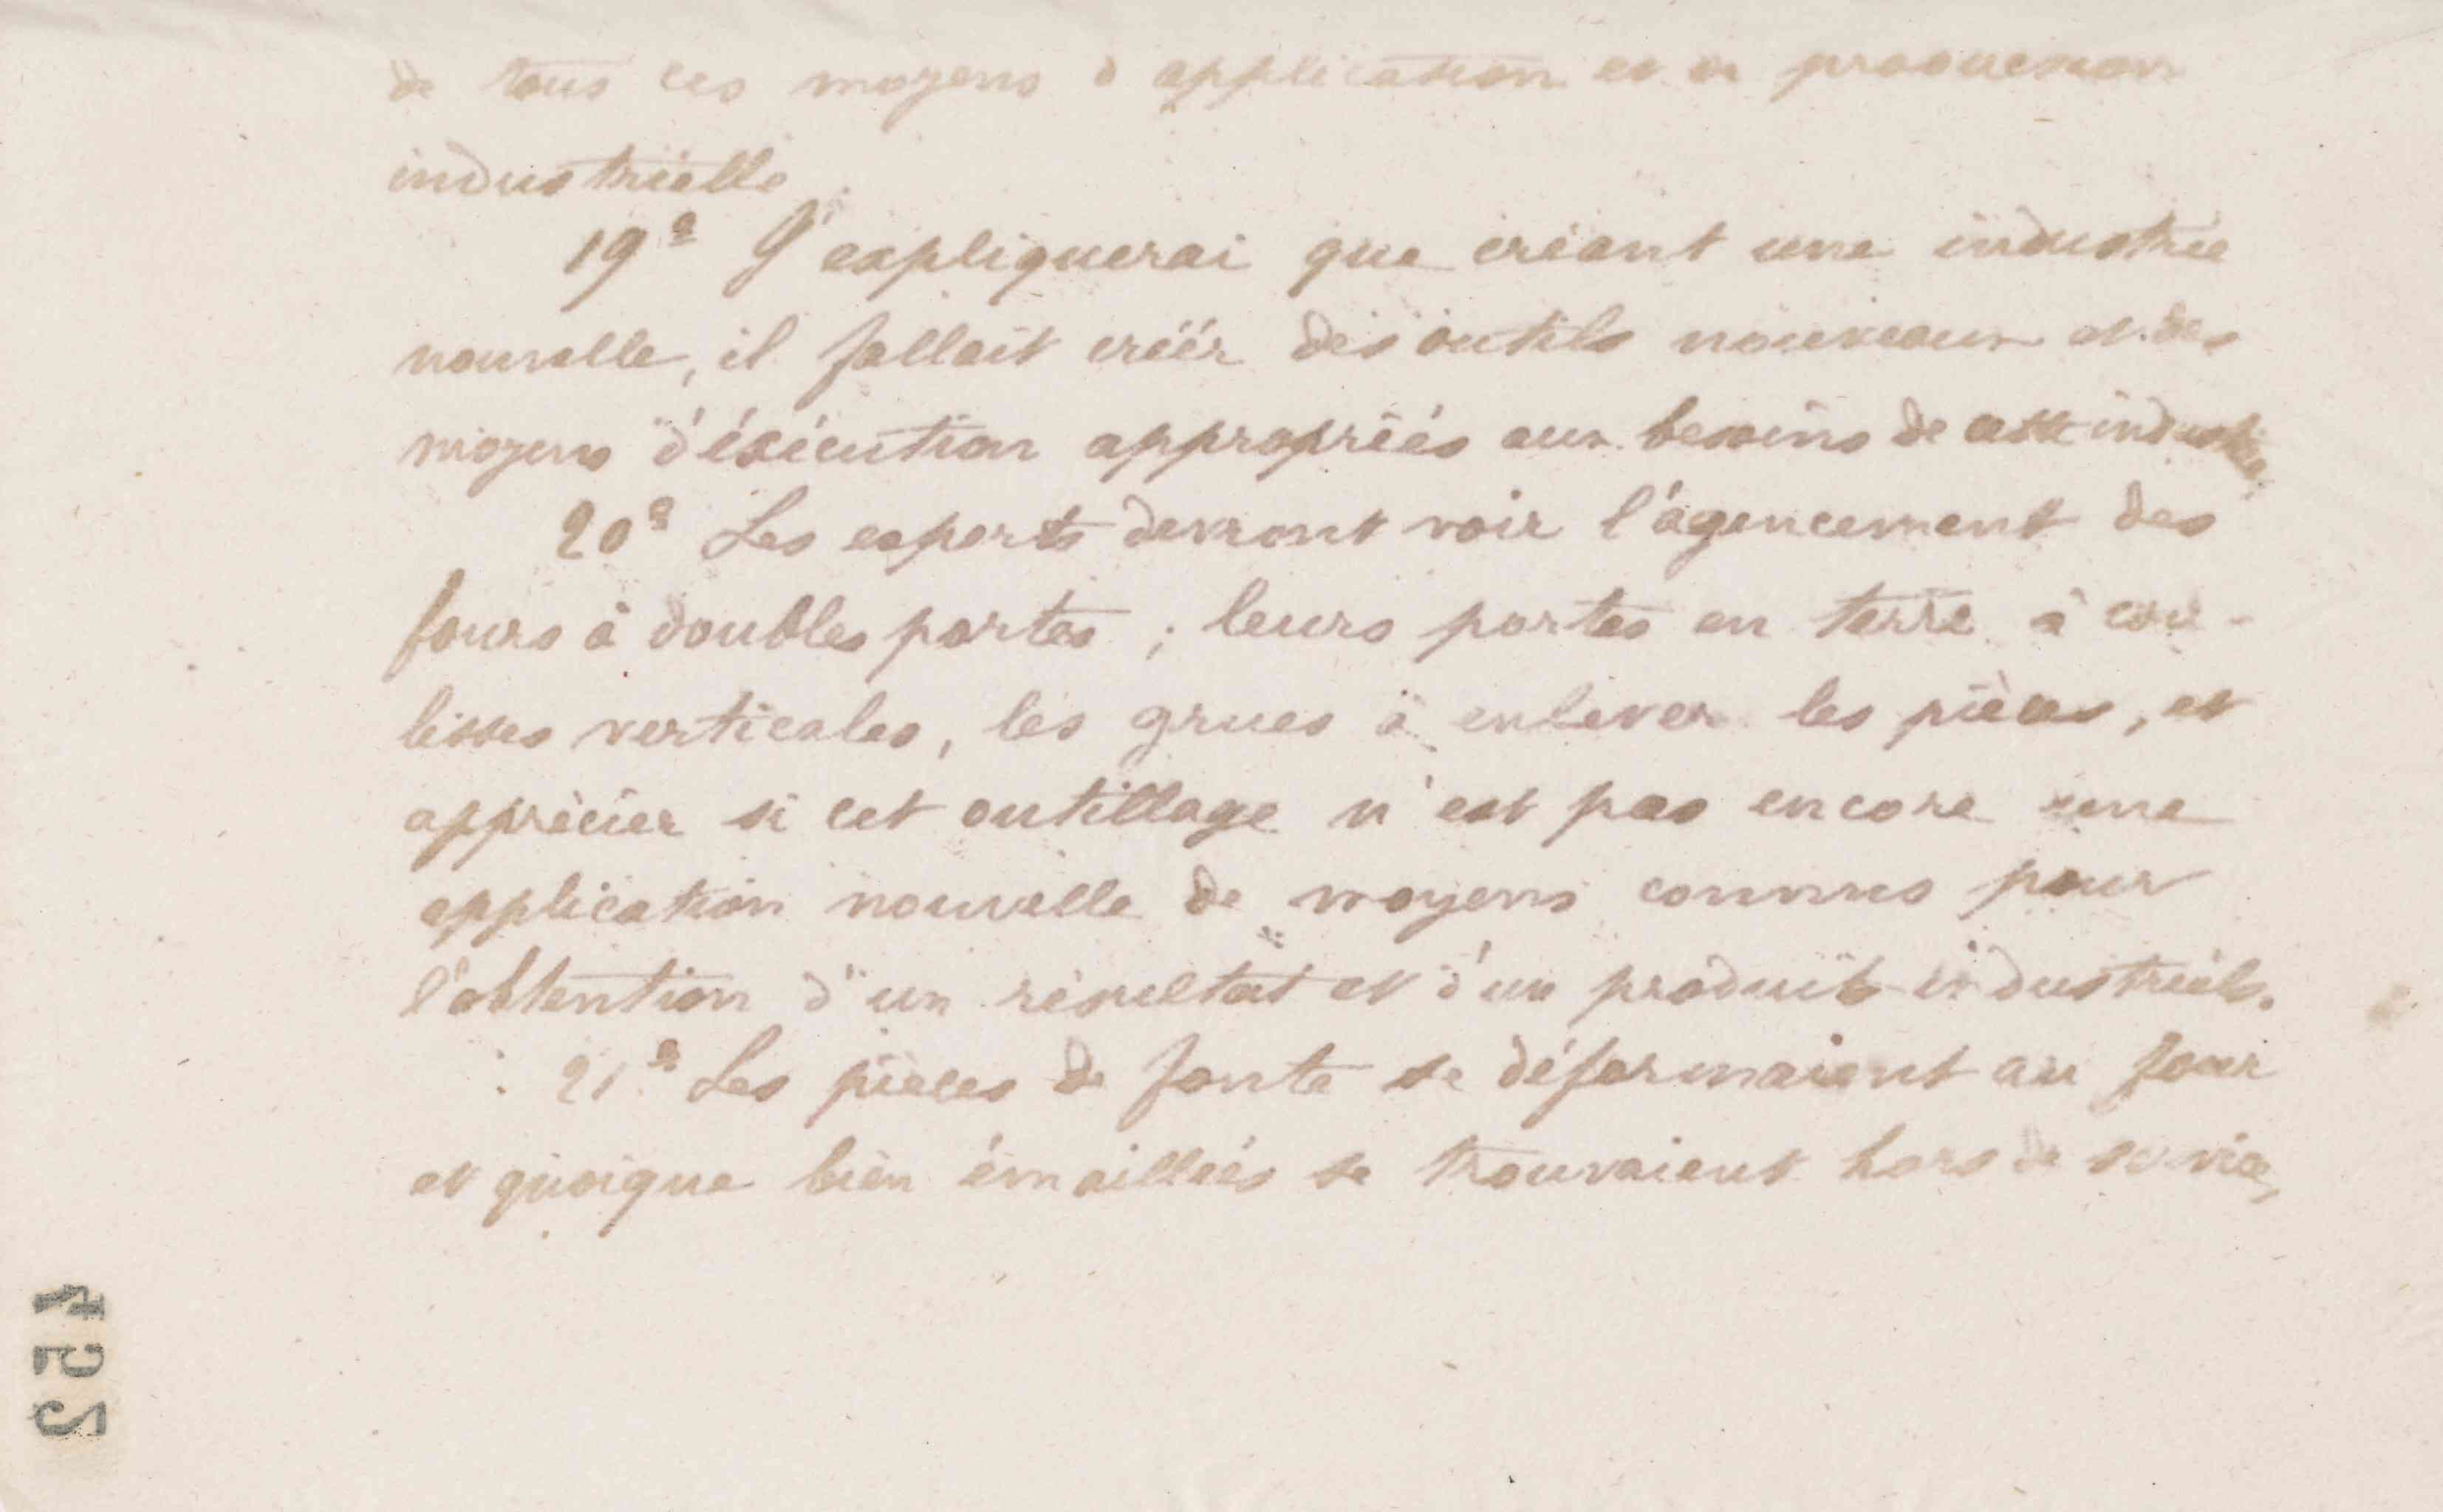 de tous ces moyens d'application et de production
industrielle.
19° J'expliquerai que créant une industrie
nouvelle, il fallait créér des outils nouveaux et des
moyens d'éxécution appropriés aux besoins de cette industrie.
20° Les experts devront voir l'agencement des
fours à doubles portes ; leurs portes en terre à cou-
lisses verticales, les grues à enlever les pièces, et
apprécier si cet outillage n'est pas encore une
application nouvelle de moyens connus pour
l'obtention d'un résultat et d'un produit industriels.
21° Les pièces de fonte se déformaient au four
et quoique bien émaillées se trouvaient hors de service,
254